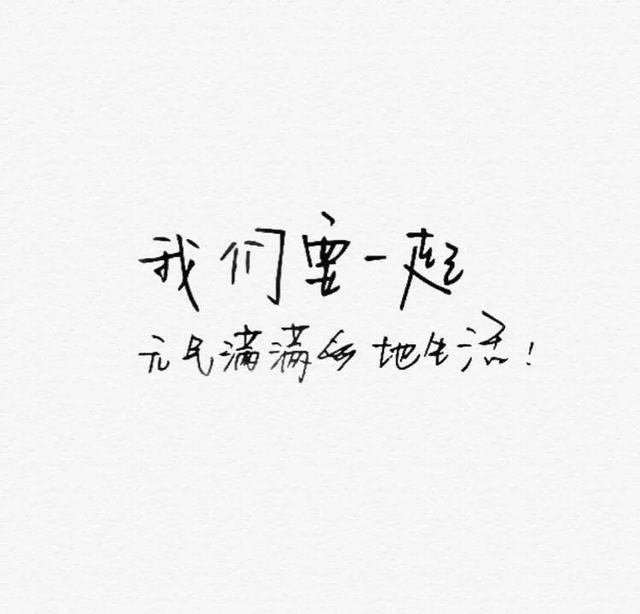 我们要一起
元气满满地生活！